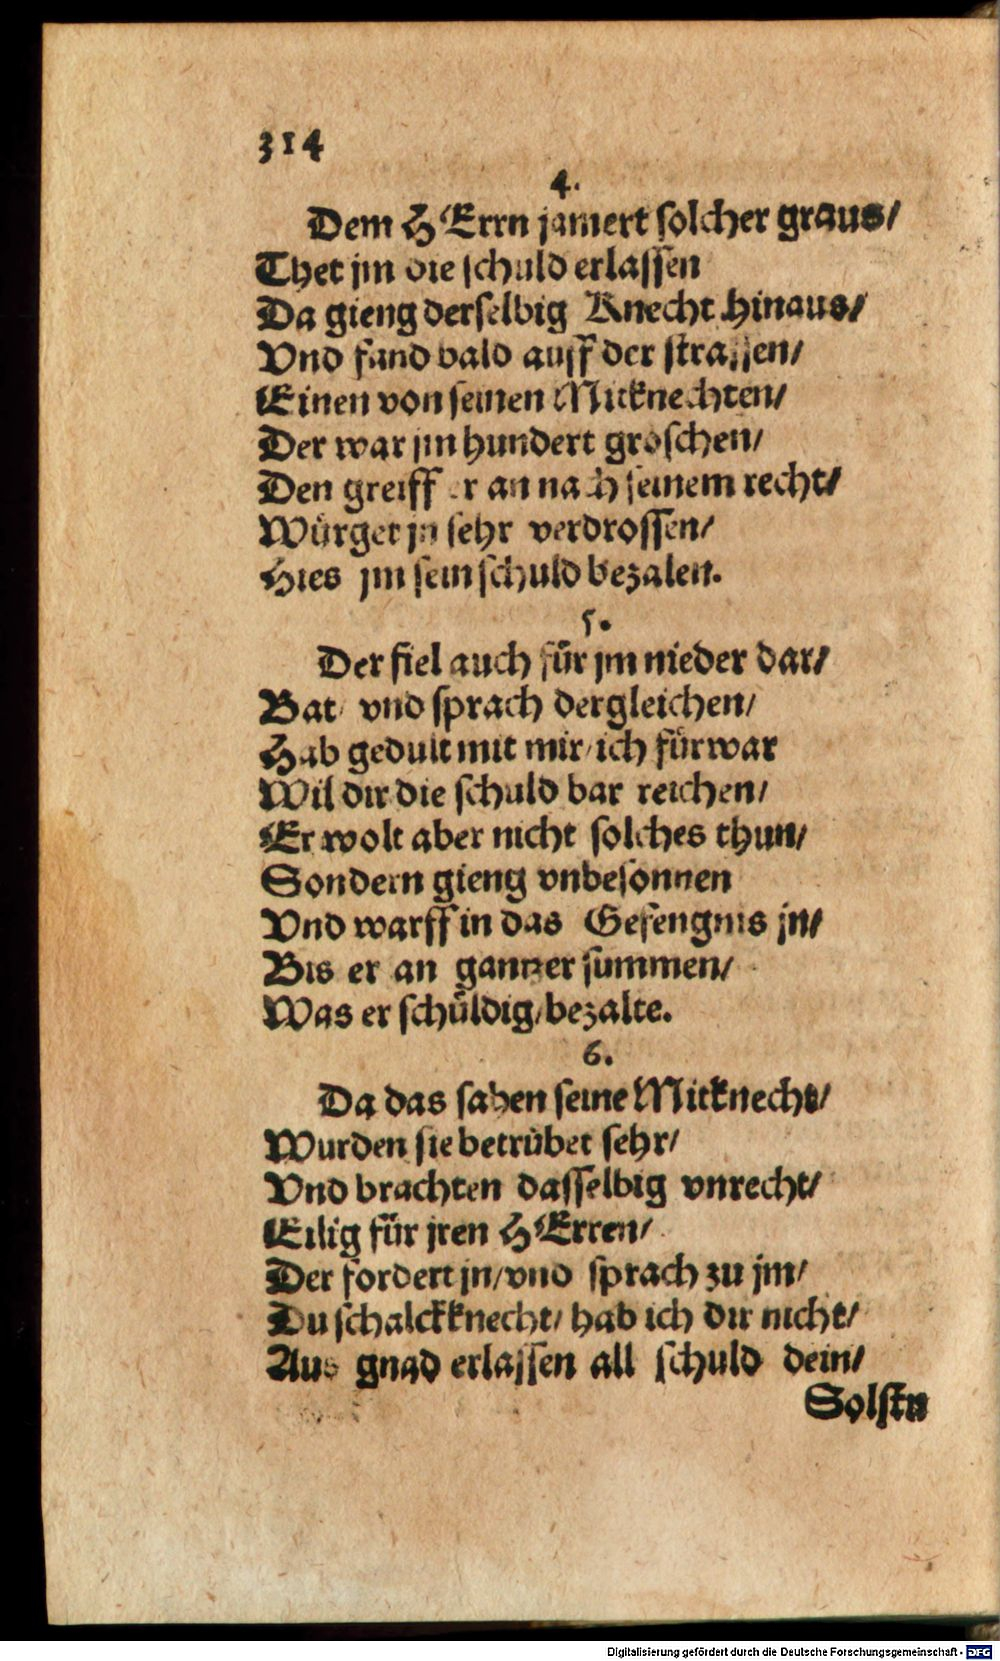 314
4.
Dem HErrn jamert solcher graus/
Thet jm die schuld erlassen
Da gieng derselbig Knecht hinaus/
Vnd fand bald auff der strassen/
Einen von seinen Mitknechten/
Der war jm hundert groschen/
Den greiff er an nach seinem recht/
Würget jn sehr verdrossen/
Hies jm sein schuld bezalen.
5.
Der fiel auch für jm nieder dar/
Bat/ vnd sprach dergleichen/
Hab gedult mit mir/ ich fürwar
Wil dir die schuld bar reichen/
Er wolt aber nicht solches thun/
Sondern gieng vnbesonnen
Vnd warff in das Gefengnis jn/
Bis er an gantzer summen/
Was er schüldig/ bezalte.
6.
Da das sahen seine Mitknecht/
Wurden sie betrübet sehr/
Vnd brachten dasselbig vnrecht/
Eilig für jren HErren/
Der fordert jn/ vnd sprach zu jm/
Du schalckknecht/ hab ich dir nicht/
Aus gnad erlassen all schuld dein/
Solstu
Digitalisierung gefördert durch die Deutsche Forschungsgemeinschaft - DFG